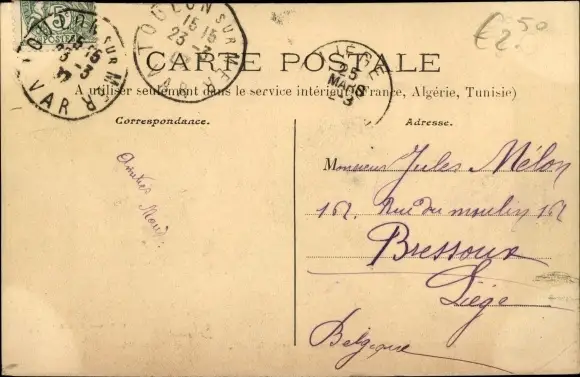 5
POSTES
TOULON SUR MER
15 15
23 - 3
VAR
TOULON SUR MER
15 15
23 - 3
VAR
€ 2.50
CARTE POSTALE
LIEGE
25
MARS
A utiliser seulement dans le service intérieur (France, Algérie, Tunisie)
Correspondance.
Adresse.
Amitiés
Monsieur Jules Mélon
Rue du moulin
Bressoux
Liége
Belgique